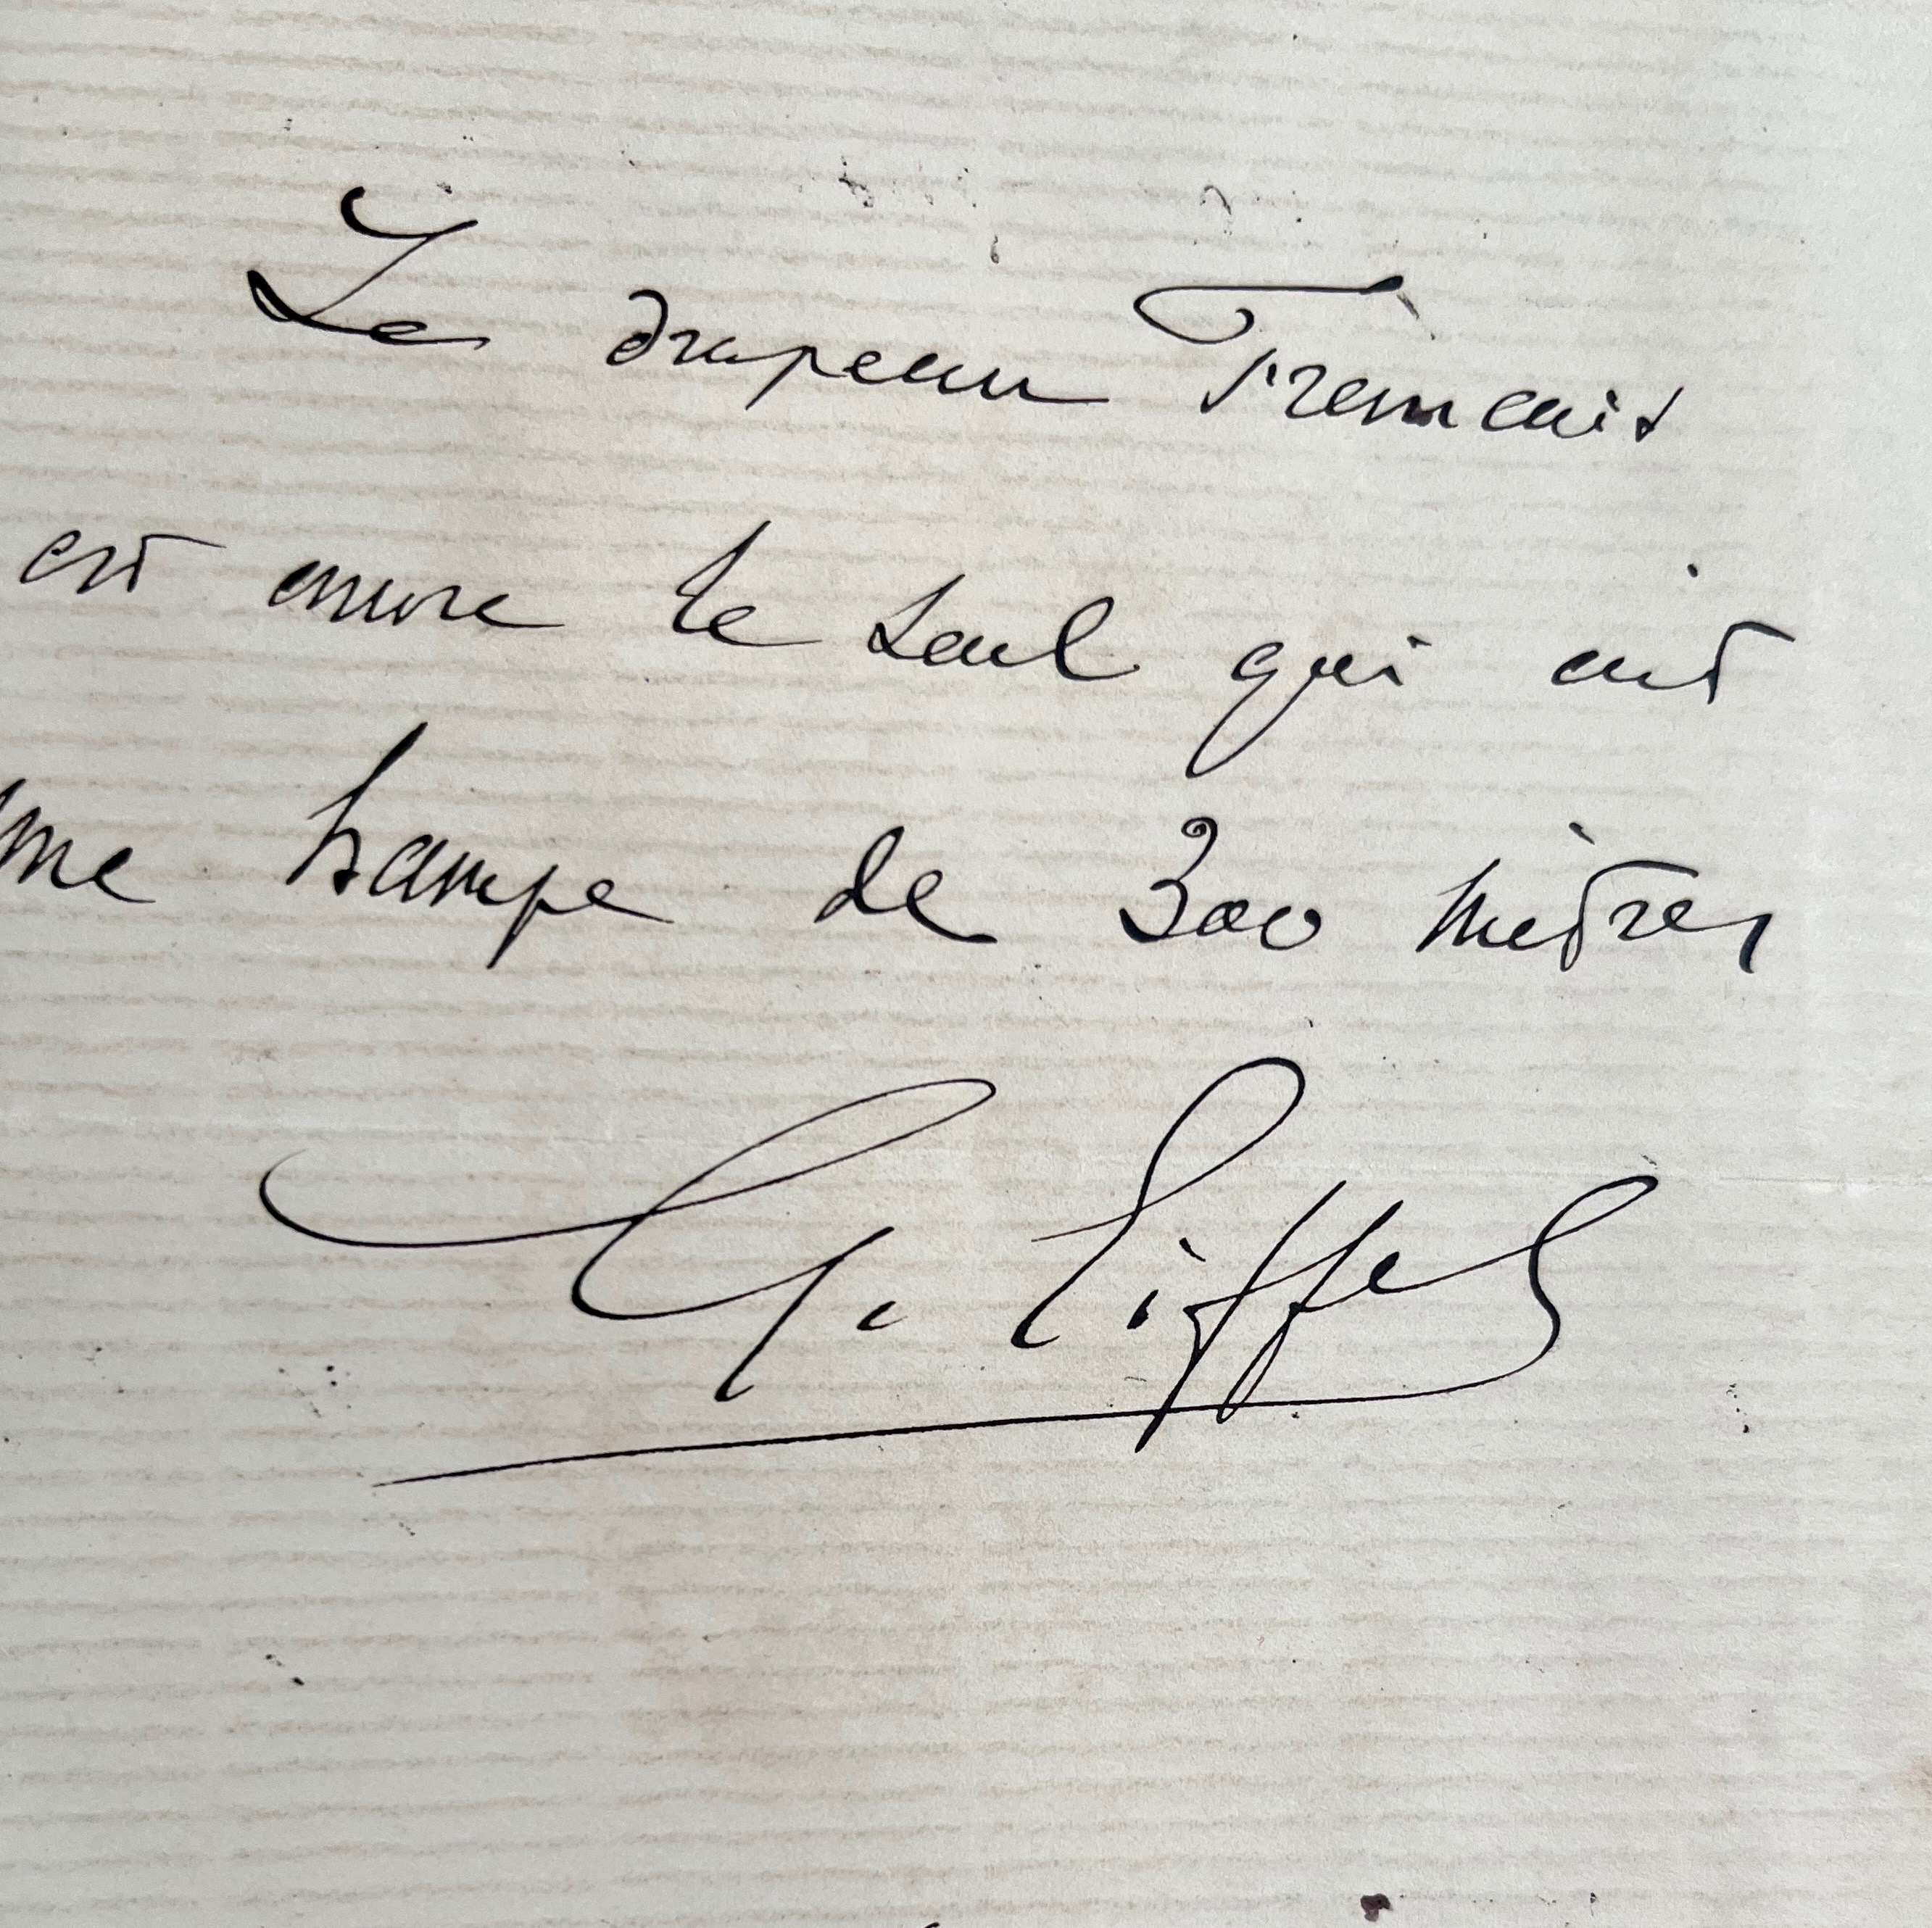 Le drapeau Francais
est encore le seul qui ait
une hampe de 300 mètres
G. Eiffel